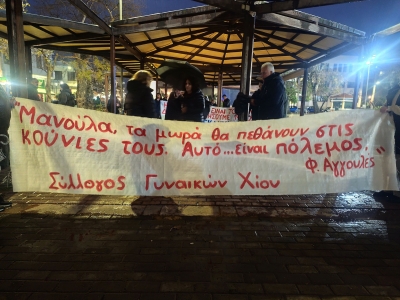 "Μανούλα, τα μωρά θα πεθάνουν στις
κούνιες τους. Αυτό...είναι πόλεμος."
Φ. Αγγουλές
Σύλλογος Γυναικών Χίου